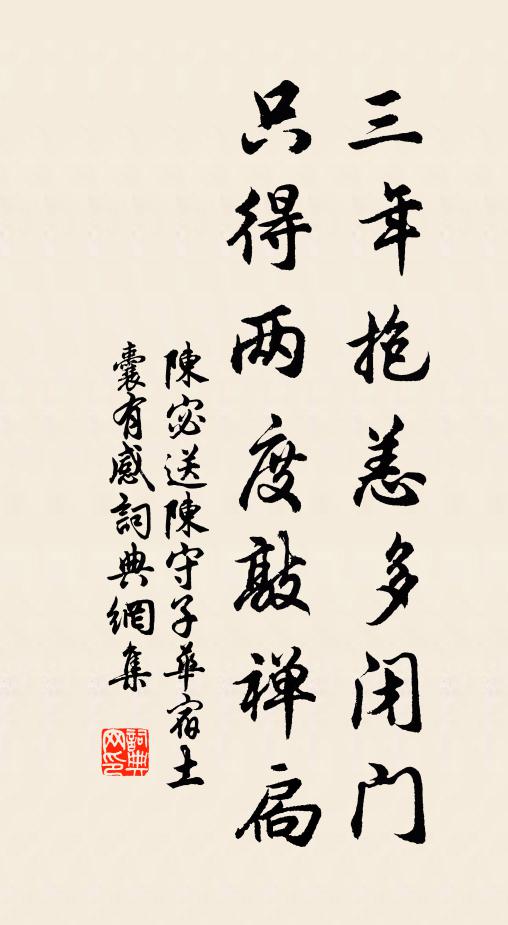 三年抱恙多闭门
只得两度敲禅扃
陳宓送陳守子華宿土
囊有感詞典網集
詞典
网印